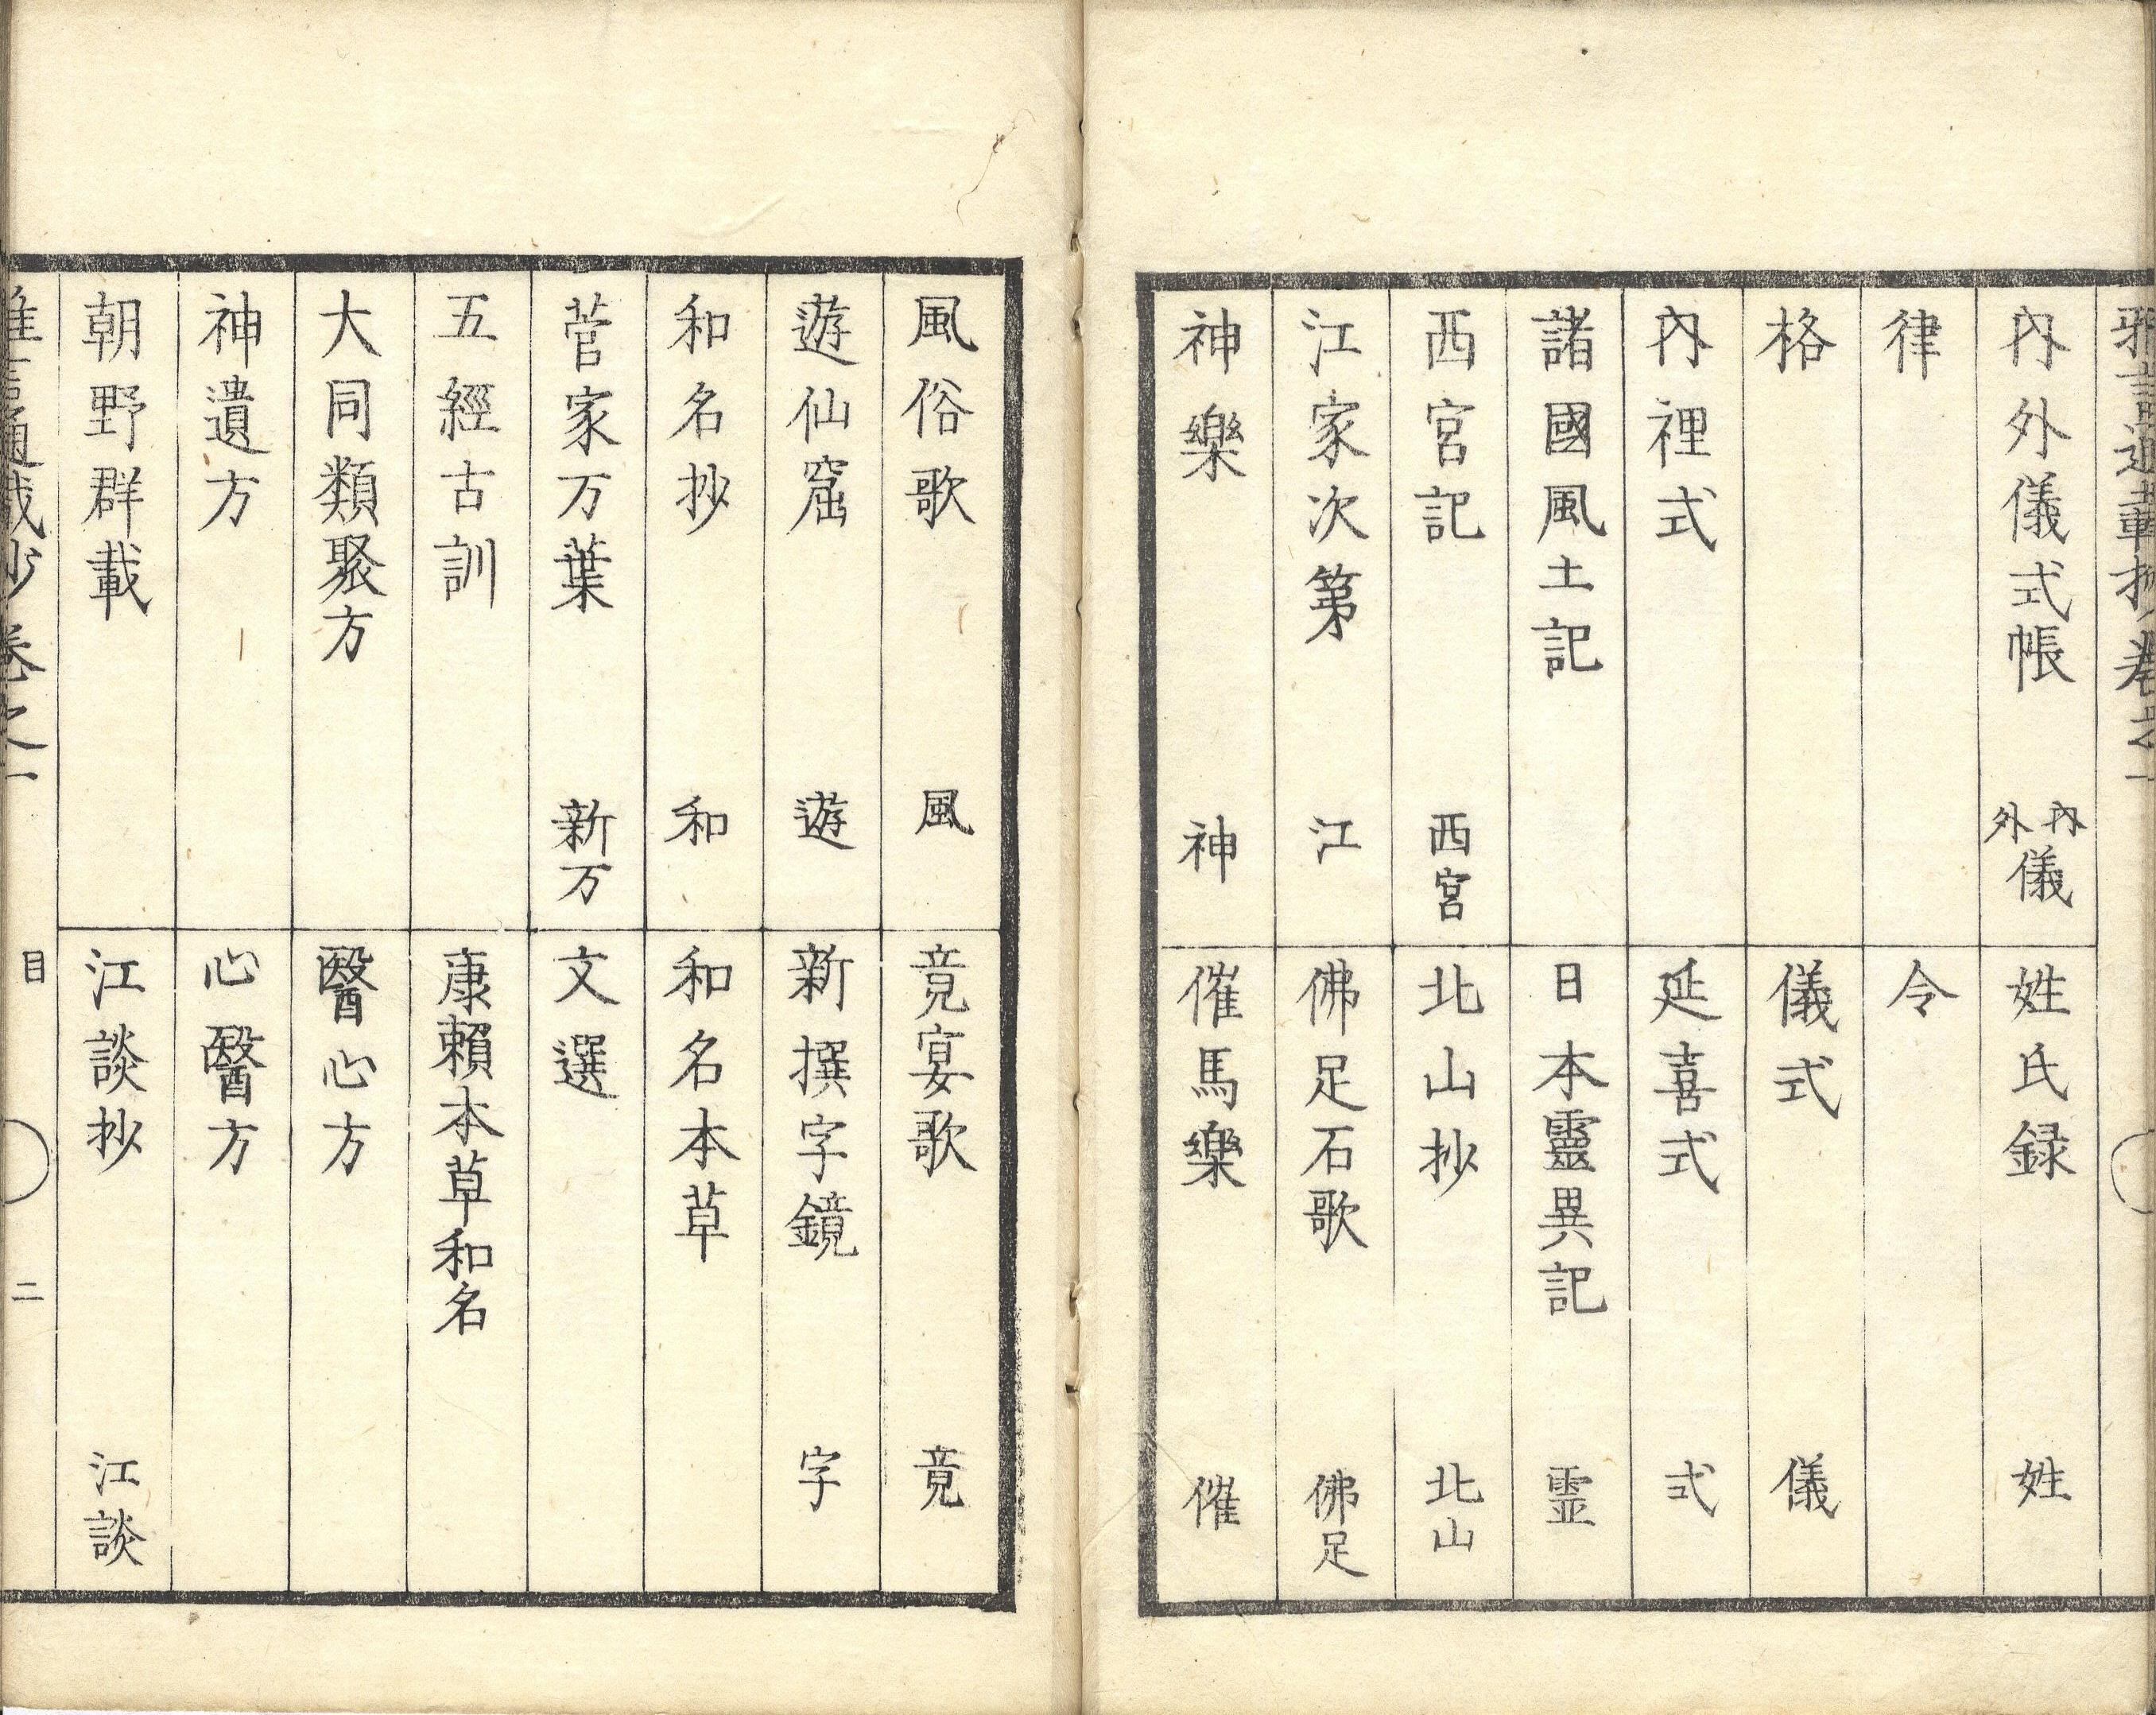 雅言通載抄卷之一
內外儀式帳 內外儀 姓氏録 姓
律 令
格 儀式 儀
內裡式 延喜式 式
諸國風土記 日本靈異記 霊
西宮記 西宮 北山抄 北山
江家次第 江 佛足石歌 佛足
神樂 神 催馬樂 催
風俗歌 風 竟宴歌 竟
遊仙窟 遊 新撰字鏡 字
和名抄 和 和名本草
菅家万葉 新万 文選
五經古訓 康賴本草和名
大同類聚方 醫心方
神遺方 心醫方
朝野群載 江談抄 江談
雅言通載抄卷之一 目 二